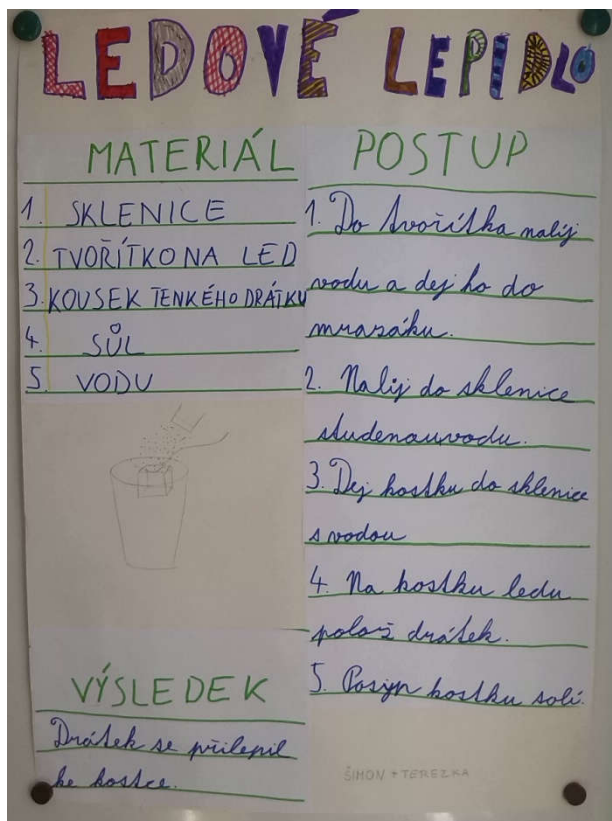 LEDOVÉ LEPIDLO
MATERIÁL
1. SKLENICE
2. TVOŘÍTKO NA LED
3. KOUSEK TENKÉHO DRÁTKU
4. SŮL
5. VODU
VÝSLEDEK
Drátek se přilepil
ke kostce.
POSTUP
1. Do tvořítka nalij
vodu a dej ho do
mrazáku.
2. Nalij do sklenice
studenou vodu.
3. Dej kostku do sklenice
s vodou
4. Na kostku ledu
polož drátek.
5. Posyp kostku solí.
ŠIMON + TEREZKA